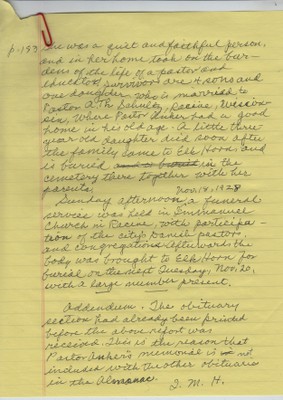 p.193 She was a quiet and faithful person,
and in her home took on the bur-
dens of the life of a pastor and
educator. Survivors are 4 sons and
one daughter who is married to
Pastor A. Th. Schultz, Racine, Wiscon-
sin, where Pastor Anker had a good
home in his old age. A little three
year old daughter died soon after
the family came to Elk Horn and
is buried in the
cemetery there together with her
parents.
Nov. 18, 1928
Sunday afternoon, a funeral
service was held in Emmanuel
Church in Racine with participa-
tion of the city's Danish pastors
and congregations. Afterwards the
body was brought to Elk Horn for
burial on the next Tuesday, Nov. 20,
with a large number present.
Addendum. The obituary
section had already been printed
before the above report was
received. This is the reason that
Pastor Anker's memorial is not
included with other obituaries
in the Almanac. I. M. H.